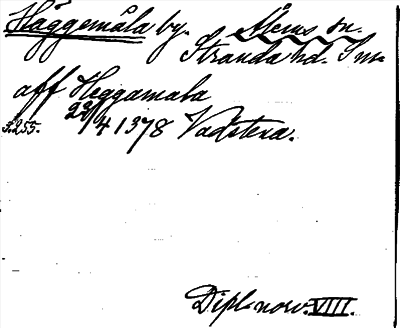 Häggemåla by. Ålems sn.
Stranda hd. Sm.
aff Heggamala
s. 255. 23/4 1378 Vadstena.
Dipl. norv. VIII.